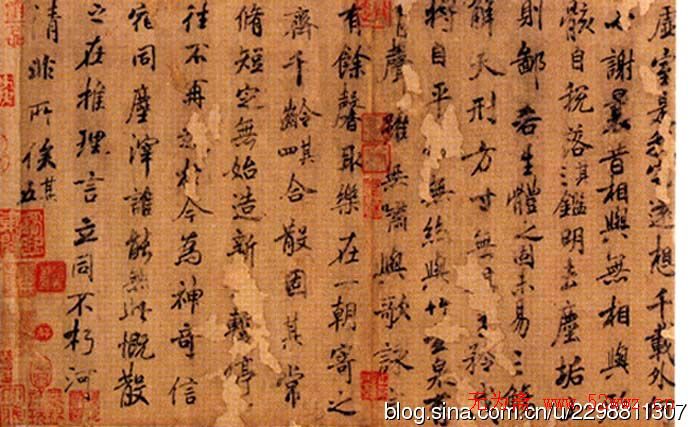 虛室是我宅遠想千載外
必謝曩昔相與無相與
骸自税落其鑑明去塵垢
則鄙吝生體之固未易三觴
解天刑方寸無矜
將自平無絲與竹玄泉有
聲雖無嘯與歌詠
有餘馨取樂在一朝寄之
齊千齡其四合散固其常
脩短定無始造新暫停
往不再起於今為神奇信
宿同塵滓誰能無此慨散
之在推理言立同不朽河
清非所俟其五
blog.sina.com.cn/u/2298811307